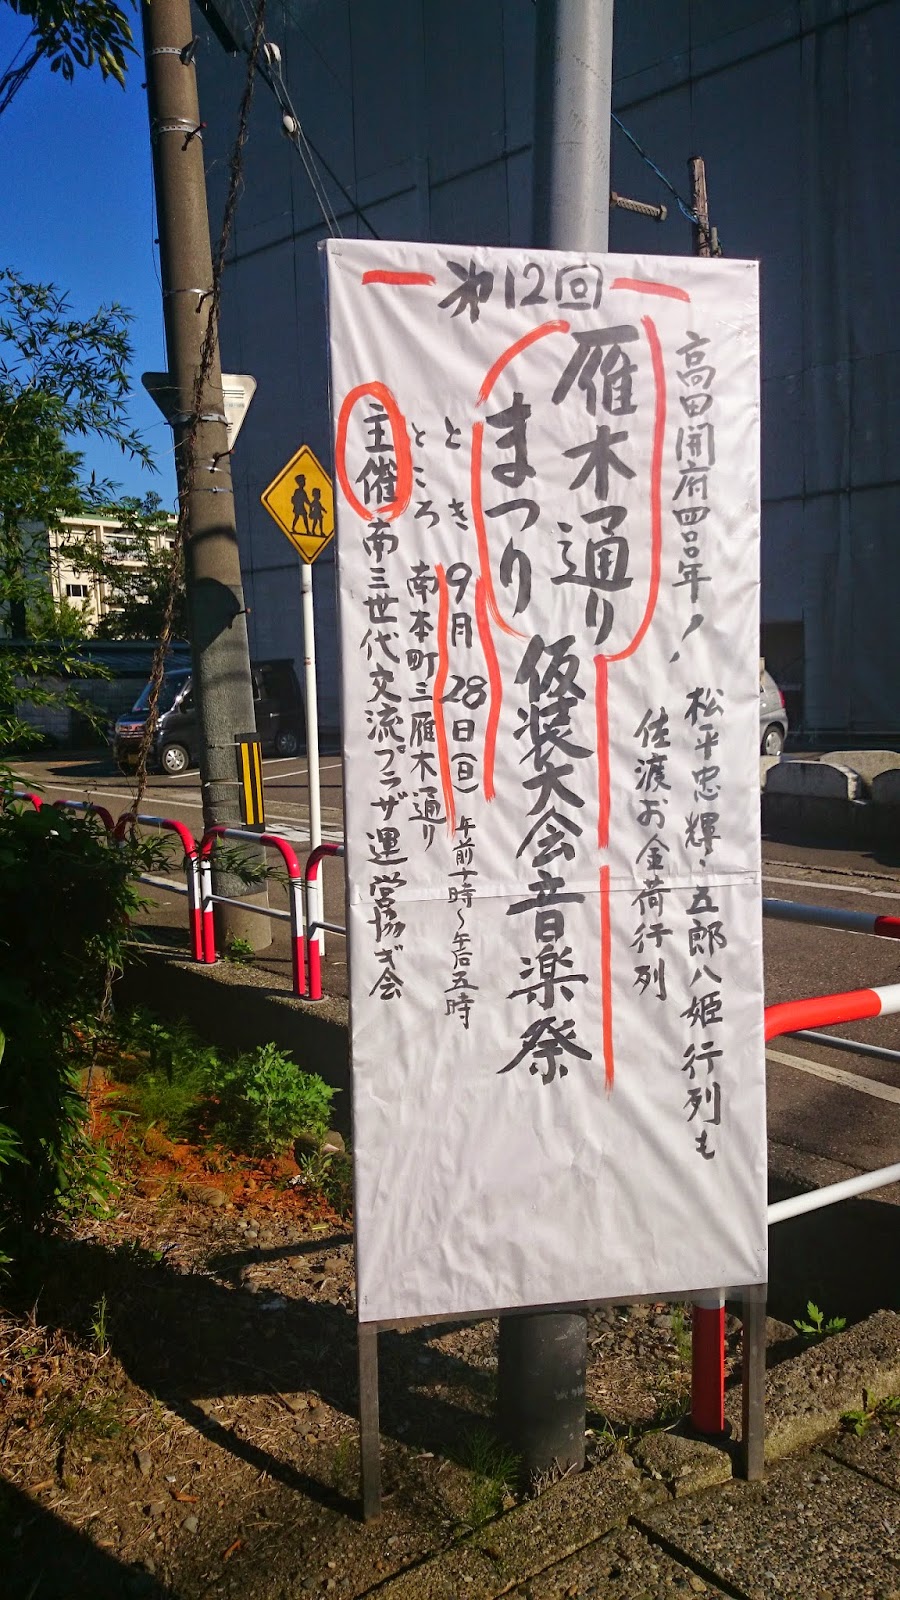 第12回
高田開府四〇〇年!!
松平忠輝・五郎八姫行列も
佐渡お金荷行列
雁木通り
まつり
仮装大会音楽祭
とき 9月28日(日) 午前十時〜午后五時
ところ 南本町三雁木通り
主催 南三世代交流プラザ運営協ギ会